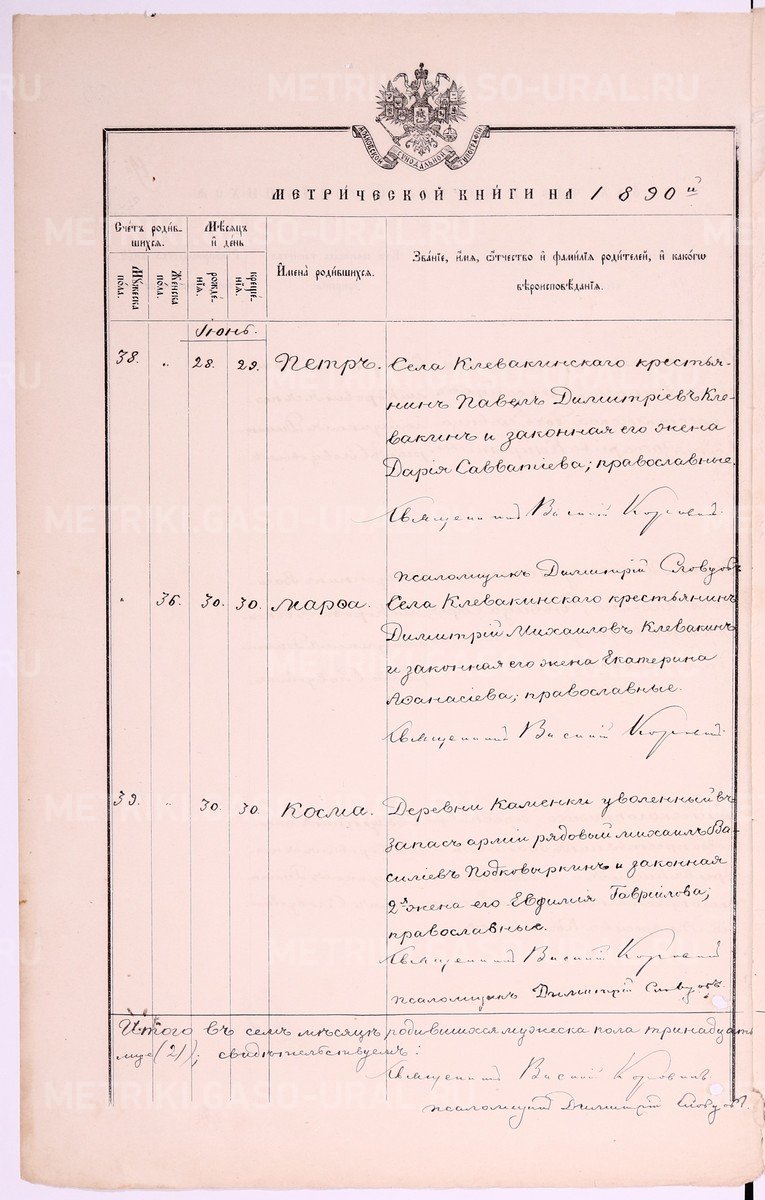 METRIKI.GASO-URAL.RU
МОСКОВСКОЙ СѴНОДАЛЬНОЙ ТИПОГРАФІИ
МЕТРИ́ЧЕСКОЙ КНИ́ГИ НА 1890й
Сче́тъ роди́в-
шихся.
Мѣ́сяцъ
и҆ де́нь
Му́жеска
по́ла.
Же́нска
по́ла.
рожде́-
нїя.
креще́-
нїя.
И҆мена̀ роди́вшихся.
Зва́нїе, и҆́мя, ѻ҆́тчество и҆ фами́лїя роди́телей, и҆ како́гѡ
вѣроисповѣ́данїя.
Іюнь.
38. „ 28. 29. Петръ. Села Клевакинскаго крестья-
нинъ Павелъ Димитріевъ Кле-
вакинъ и законная его жена
Дарія Савватіева; православные.
Священникъ Василій Коровинъ.
псаломщикъ Димитрій Словцовъ
„ 36. 30. 30. Марѳа. Села Клевакинскаго крестьянинъ
Димитрій Михаиловъ Клевакинъ
и законная его жена Екатерина
Аѳанасіева; православные.
Священникъ Василій Коровинъ.
39. „ 30. 30. Косма. Деревни Каменки уволенный въ
запасъ арміи рядовый Михаилъ Ва-
силіевъ Подковыркинъ и законная
2я жена его Евфимія Гавріилова;
православные.
Священникъ Василій Коровинъ
псаломщикъ Димитрій Словцовъ.
Итого въ семъ мѣсяцѣ родившихся мужеска пола тринадцать
(21); свидѣтельствуемъ:
Священникъ Василій Коровинъ
псаломщикъ Димитрій Словцовъ.